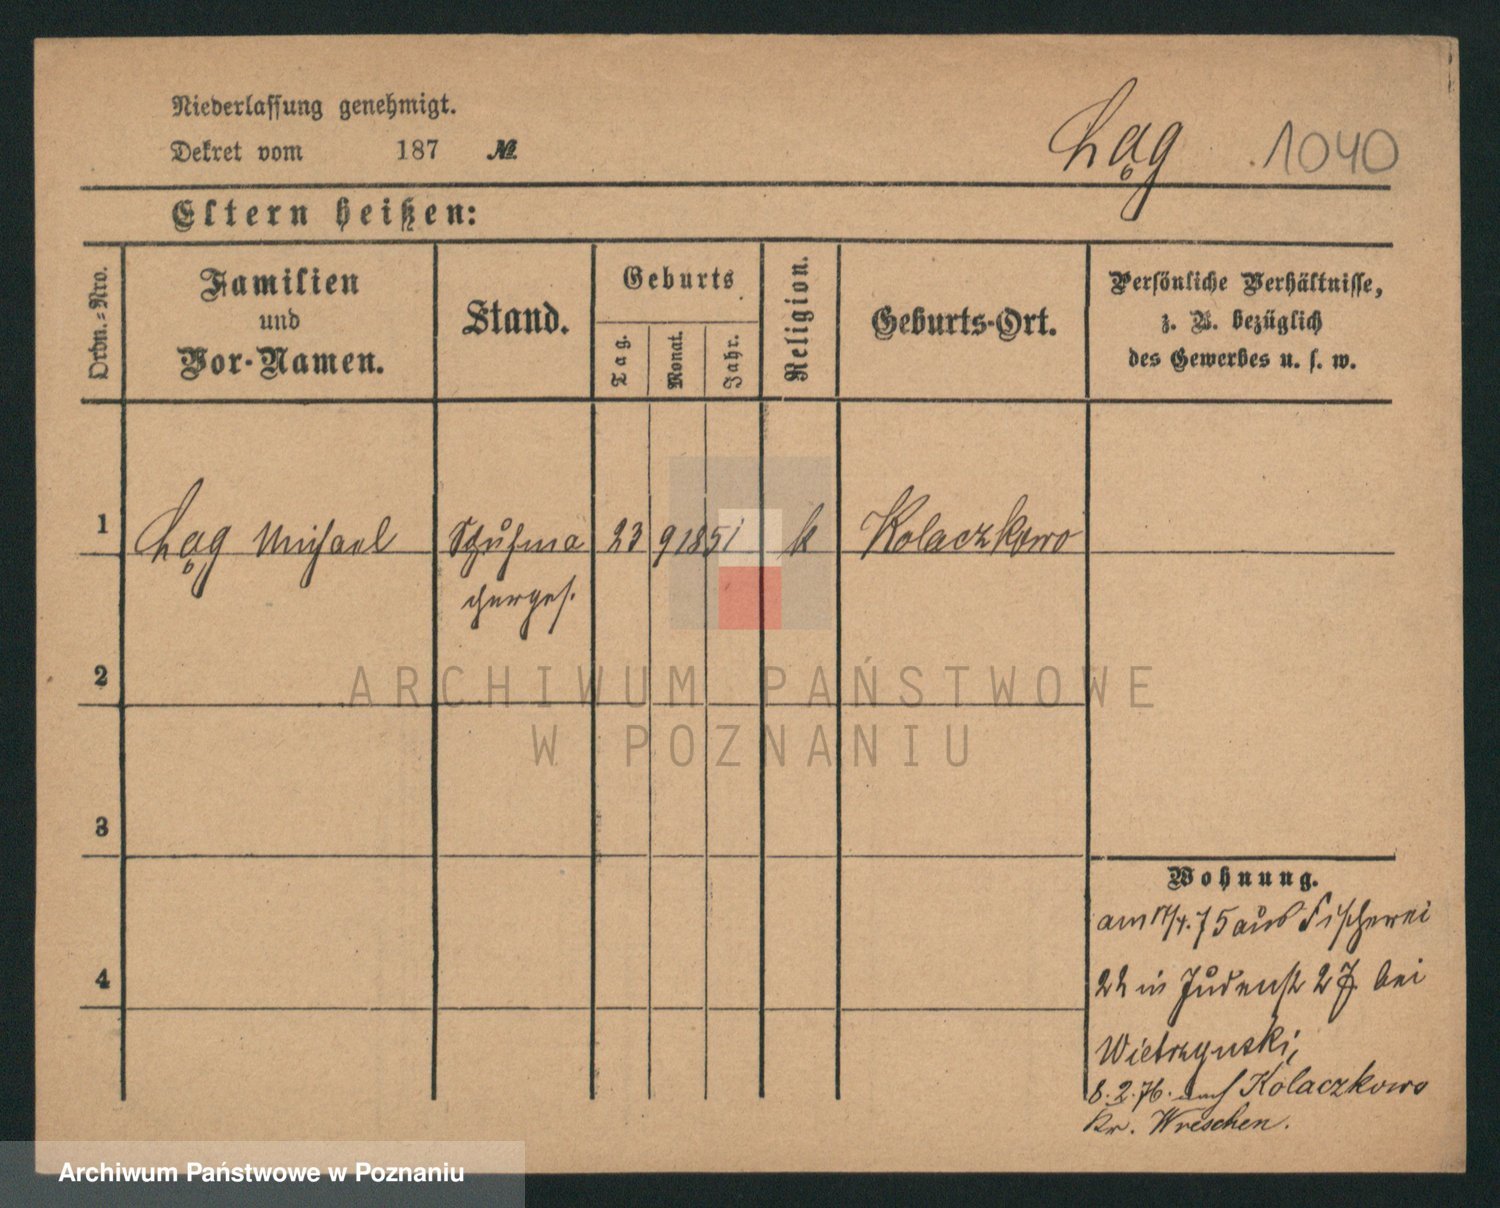 Niederlassung genehmigt.
Dekret vom 187 №
Łąg 1040
Eltern heißen:
Ordn.=Nro.
Familien
und
Vor-Namen.
Stand.
Geburts
Tag.
Monat.
Jahr.
Religion.
Geburts-Ort.
Persönliche Verhältnisse,
z. B. bezüglich
des Gewerbes u. s. w.
1 Łąg Michael Schuhma 23 9 1851 k Kolaczkowo
cherges.
2
ARCHIWUM PAŃSTWOWE
W POZNANIU
3
4
Wohnung.
am 17/4. 75 aus Fischerei
22 in Judenst 27 bei
Wietrzynski,
8.2.76. nach Kolaczkowo
Kr. Wreschen.
Archiwum Państwowe w Poznaniu